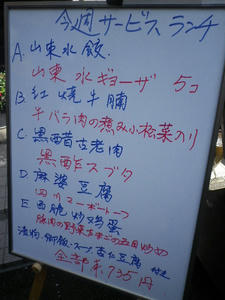 今週サービスランチ
A. 山東水餃.
山東 水ギョーザ 5コ
B. 紅燒牛腩
牛バラ肉の煮み小松菜入り
C 黒醋古老肉
黒酢スブタ
D 麻婆豆腐
四川マーボートーフ
E 西脆炒鶏蛋
豚肉の野菜玉子の五目炒め
漬物・御飯・スープ・杏仁豆腐 付き
全部庫 735円